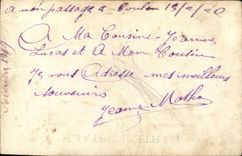 a mon passage a Toulon 15/1/20
A Ma Cousine Jeanne
Lucas et A Mon Cousin
Je vous Adresse mes meilleurs
souvenirs
Jeanne